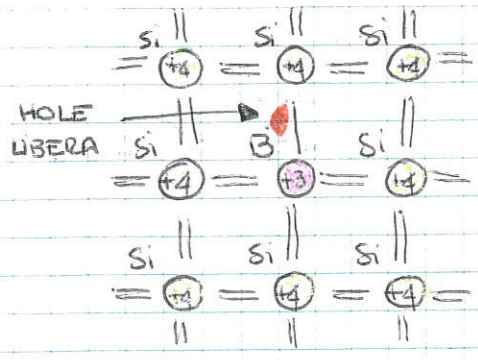 Si Si Si
+4 +4 +4
HOLE
LIBERA Si B Si
+4 +3 +4
Si Si Si
+4 +4 +4